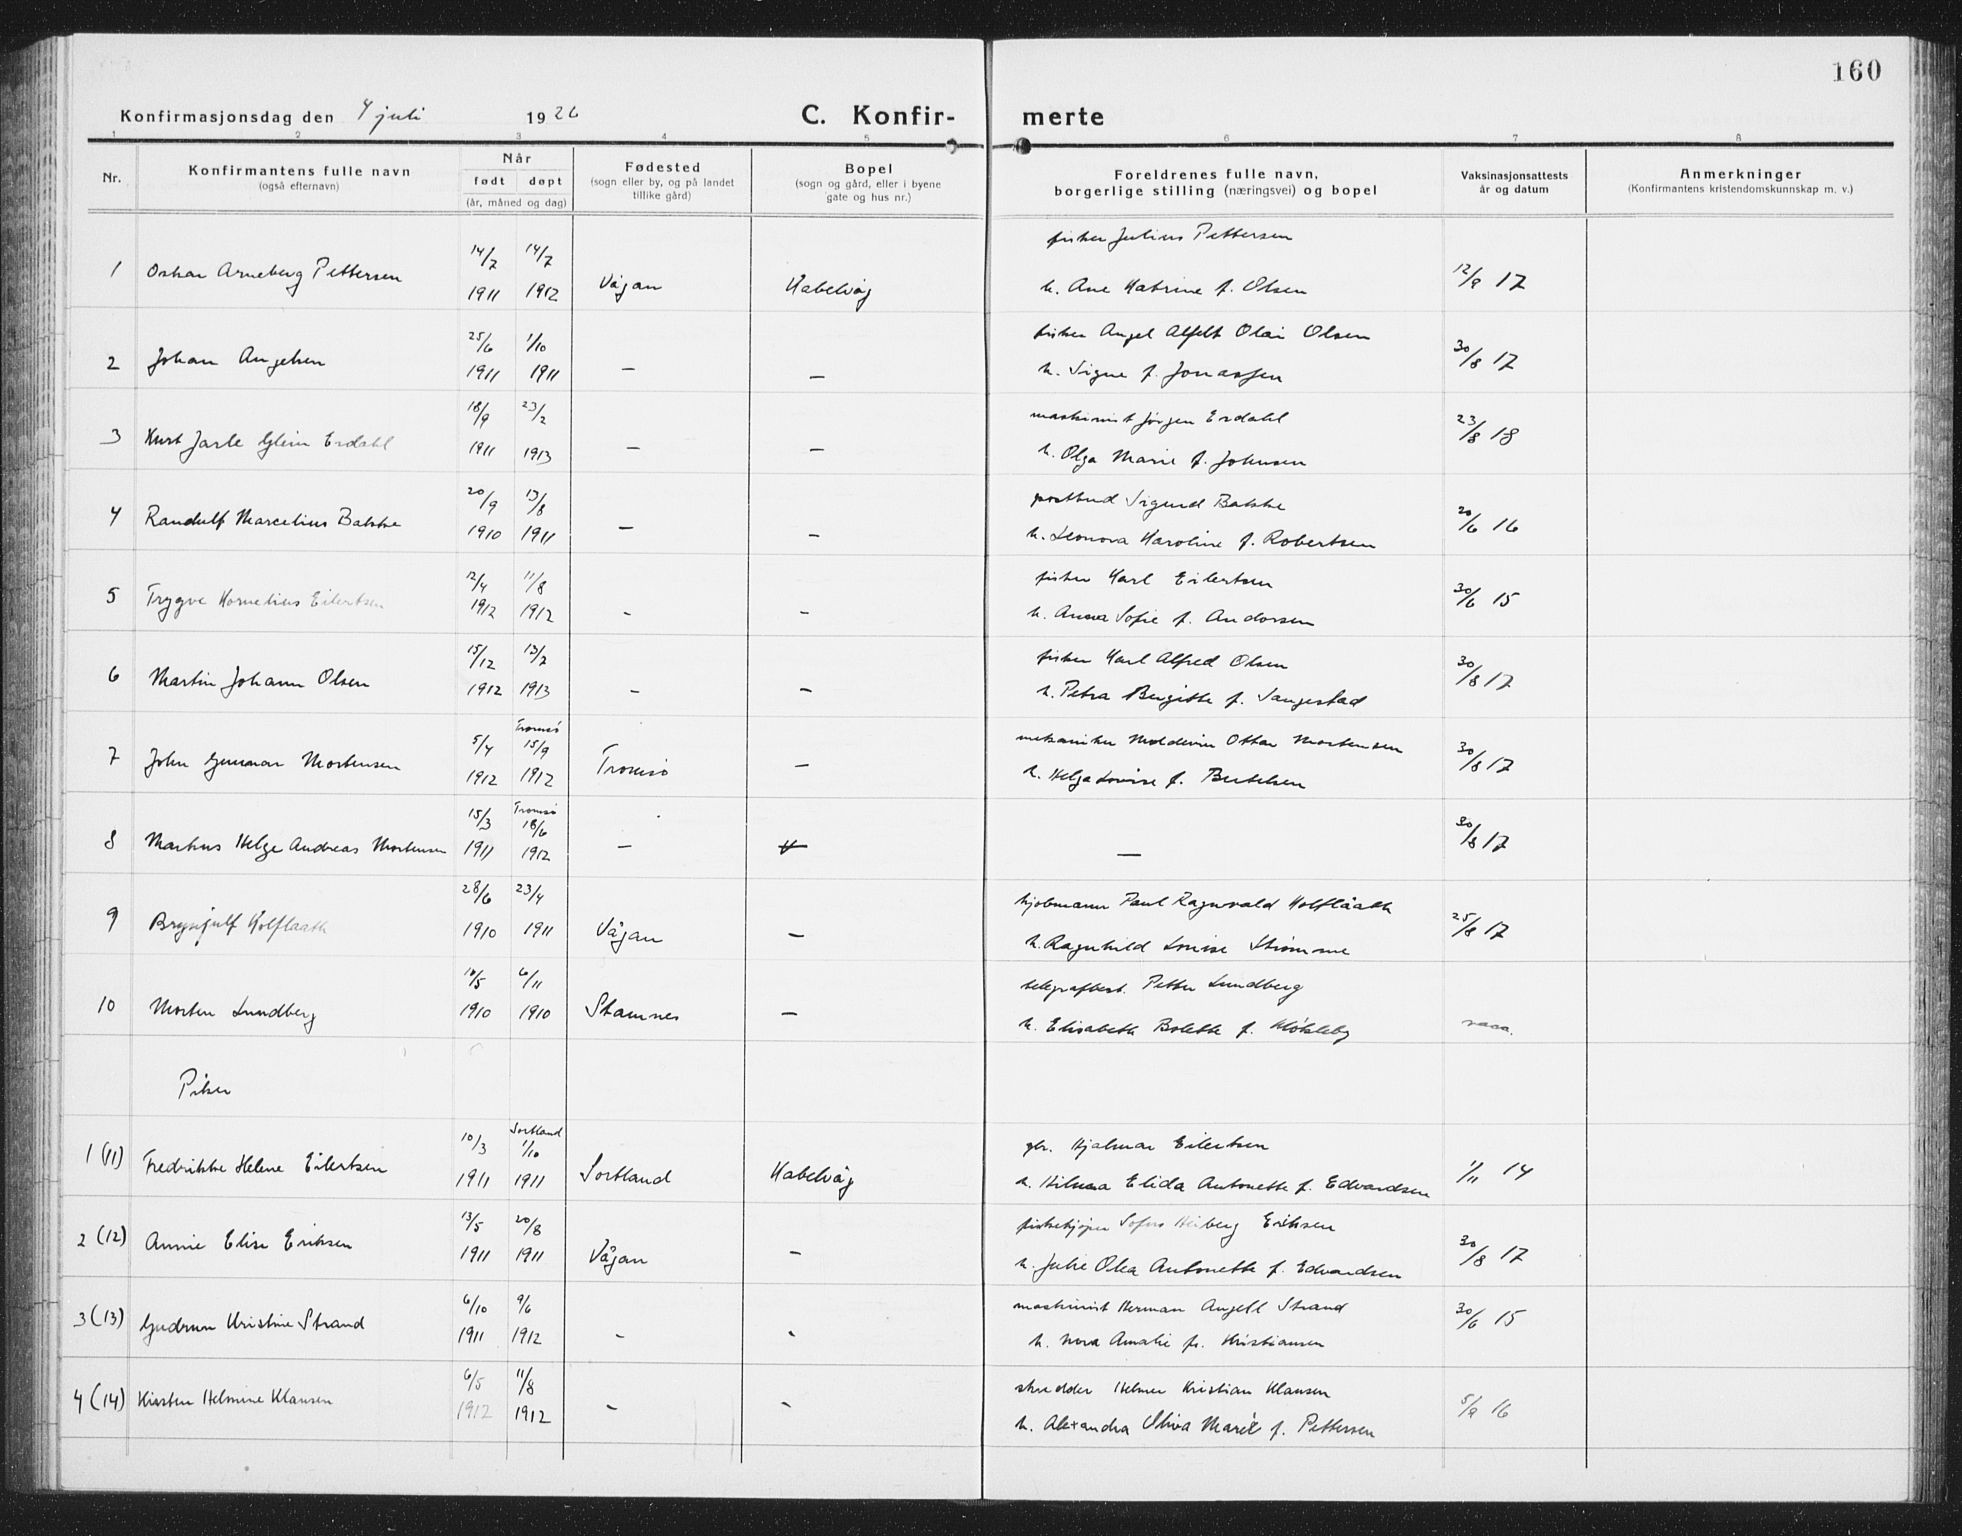 160
Konfirmasjonsdag den 4 juli 1926 C. Konfir- merte
1 2 3 4 5 6 7 8
Nr. Konfirmantens fulle navn (også efternavn) Når født døpt (år, måned og dag) Fødested (sogn eller by, og på landet tillike gård) Bopel (sogn og gård, eller i byene gate og hus nr.) Foreldrenes fulle navn, borgerlige stilling (næringsvei) og bopel Vaksinasjonsattests år og datum Anmerkninger (Konfirmantens kristendomskunnskap m. v.)
14/7 14/7 fisker Julius Pettersen
1 Oskar Arneberg Pettersen 1911 1912 Vågan Kabelvåg h. Ane Katrine f. Olsen 12/9 17
25/6 1/10 fisker Angel Alfelt Olai Olsen
2 Johan Angelsen 1911 1911 — — h. Signe f. Jonassen 30/8 17
18/9 23/2 maskinist Jørgen Erdahl
3 Kurt Jarle Glein Erdahl 1911 1913 — — h. Olga Marie f. Johnsen 23/8 18
20/9 13/8 postbud Sigurd Bakke
4 Randulf Marcelius Bakke 1910 1911 — — h. Leonora Karoline f. Robertsen 20/6 16
12/4 11/8 fisker Karl Eilertsen
5 Trygve Kornelius Eilertsen 1912 1912 - - h. Anna Sofie f. Andorsen 30/6 15
15/12 13/7 fisker Karl Alfred Olsen
6 Martin Johann Olsen 1912 1913 - - h. Petra Bergitte f. Sangestad 30/8 17
5/4 Tromsø 15/9 mekaniker Moldevin Ottar Mortensen
7 John Gunnar Mortensen 1912 1912 Tromsø — h. Helga Lovise f. Bertelsen 30/8 17
15/3 Tromsø 18/6
8 Markus Helge Andreas Mortensen 1911 1912 — — — 30/8 17
28/6 23/4 kjøbmann Paul Ragnvald Holflåath
9 Brynjulf Holflaath 1910 1911 Vågan — h. Ragnhild Louise Strømme 25/8 17
10/5 6/11 telegrafbest. Petter Lundberg
10 Morten Lundberg 1910 1910 Stamnes — h. Elisabeth Bolette f. Kløkleby
Piker
10/3 Sortland 1/10 gbr. Hjalmar Eilertsen
1 (11) Fredrikke Helene Eilertsen 1911 1911 Sortland Kabelvåg h. Hilma Elida Antonette f. Edvardsen 1/11 14
13/5 20/8 fiskekjøper Sofus Heiberg Eriksen
2 (12) Annie Elise Eriksen 1911 1911 Vågan - h. Julie Olea Antonette f. Edvardsen 30/8 17
6/10 9/6 maskinist Herman Angell Strand
3 (13) Gudrun Kristine Strand 1911 1912 - - h. Nora Amalie f. Kristiansen 30/6 15
6/5 11/8 skredder Helmer Kristian Klausen
4 (14) Kirsten Helmine Klausen 1912 1912 - - h. Alexandra Oliva Marie f. Pettersen 5/9 16